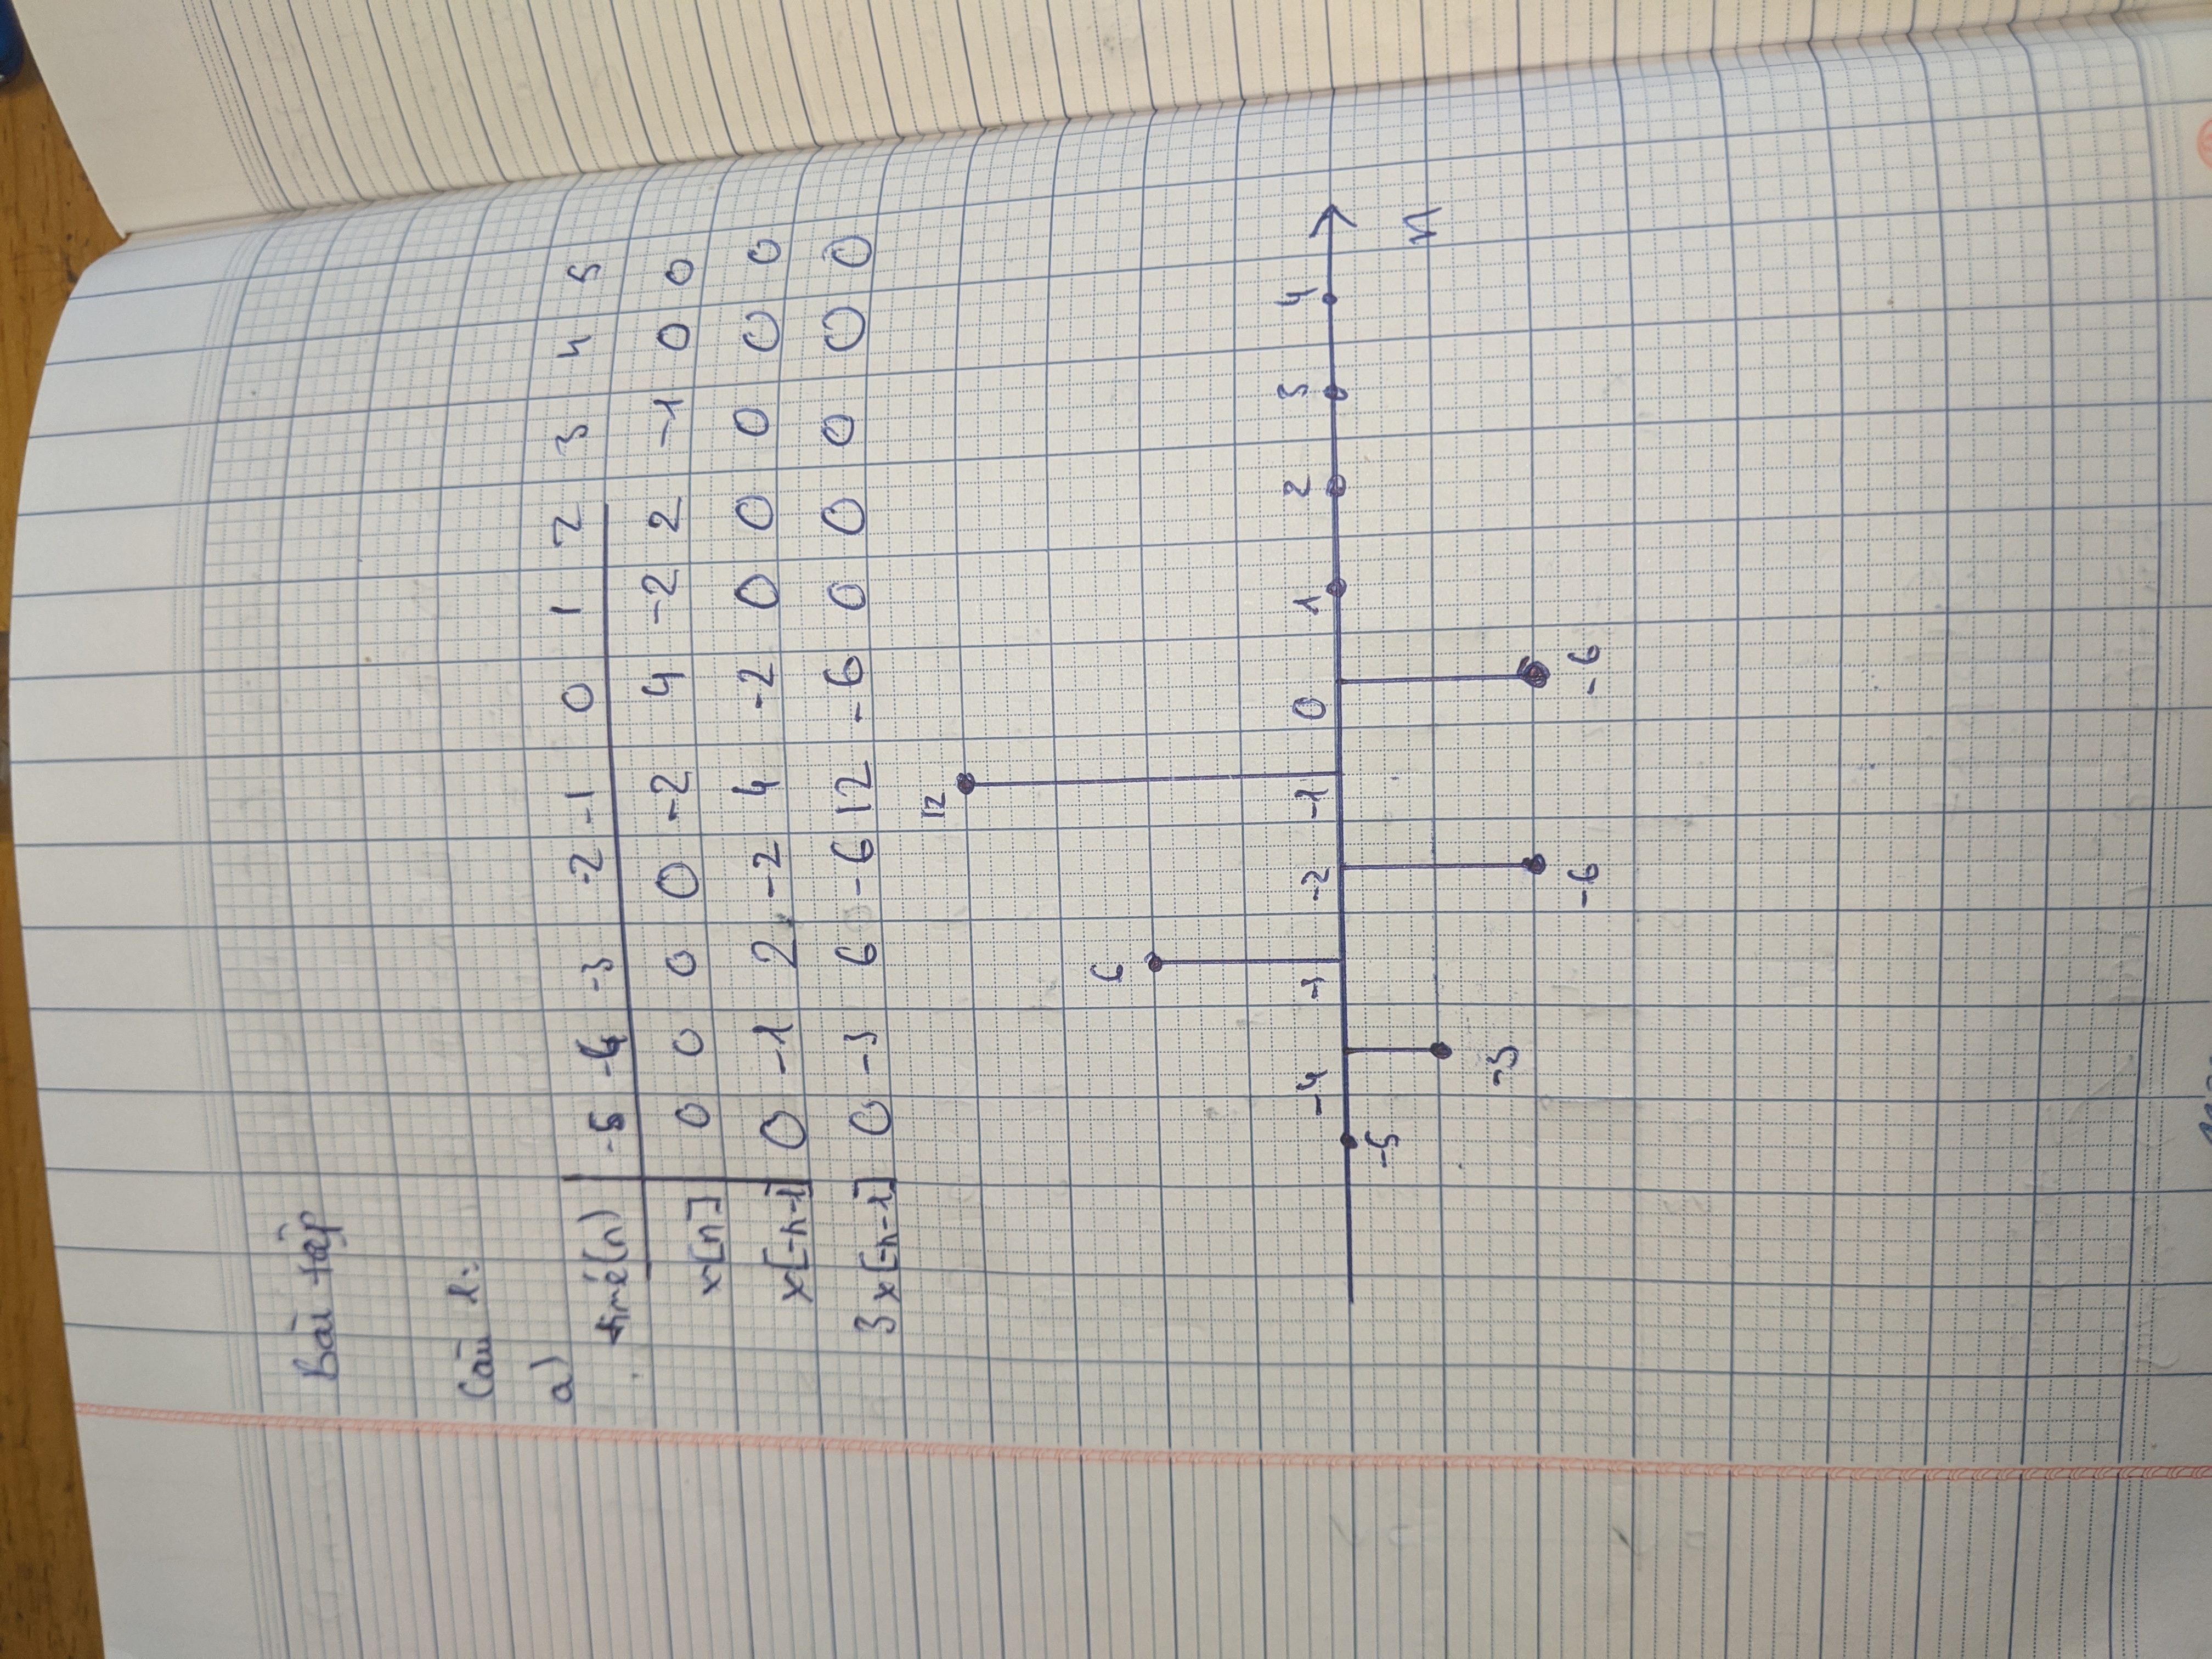 Bài tập
Câu 1:
a)
time(n) -5 -4 -3 -2 -1 0 1 2 3 4 5
x[n] 0 0 0 0 -2 4 -2 2 -1 0 0
x[-n-1] 0 -1 2 -2 4 -2 0 0 0 0 0
3x[-n-1] 0 -3 6 -6 12 -6 0 0 0 0 0
12
6
-4 -3 -2 -1 0 1 2 3 4
-5
n
-3
-6 -6